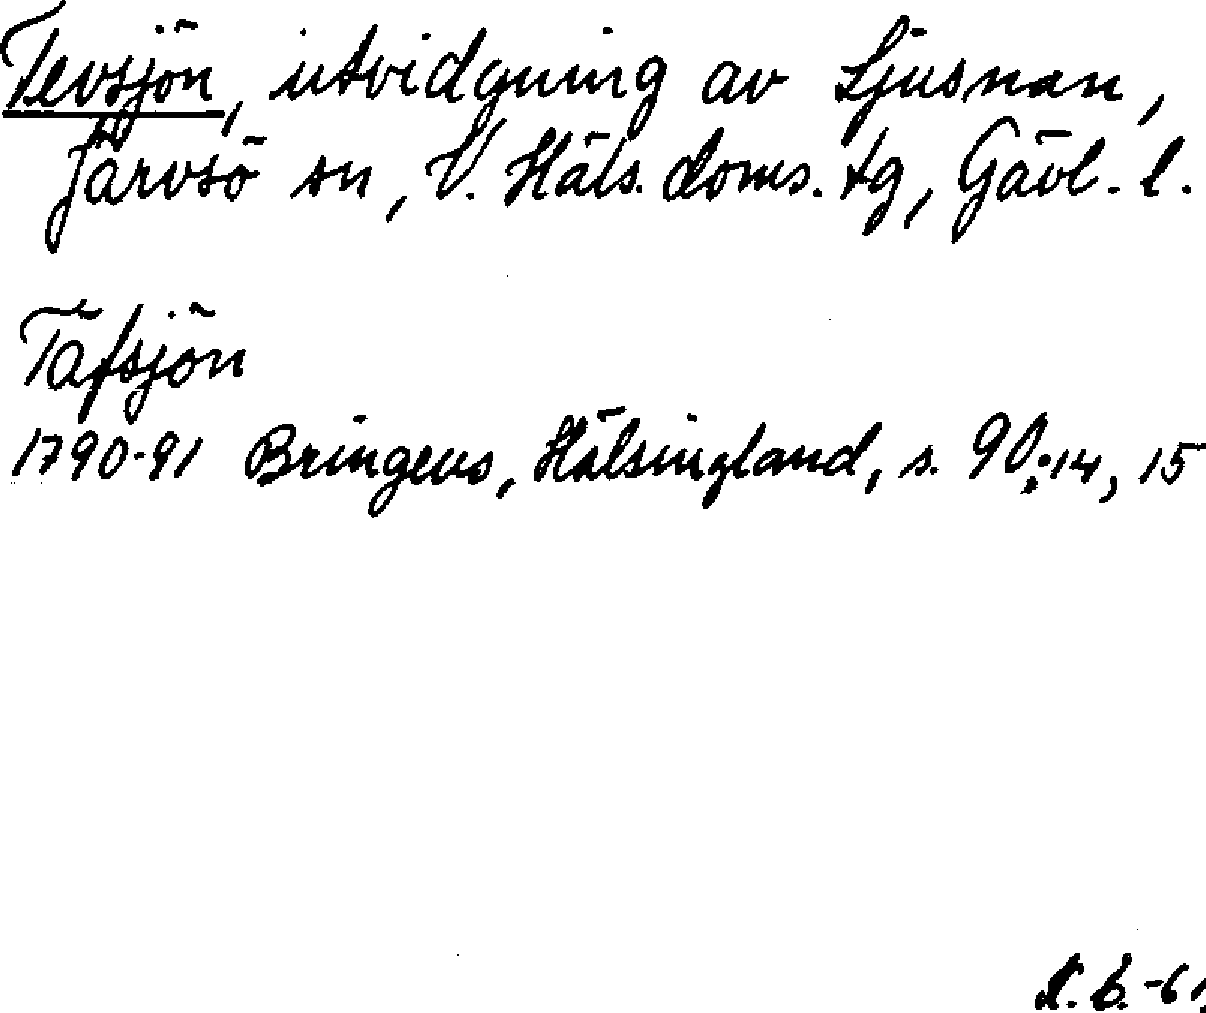 Tevsjön, utvidgning av Ljusnan,
Järvsö sn, V. Häls. doms. tg, Gävl. l.
Täfsjön
1790-91 Bringeus, Hälsingland, s. 90:14, 15